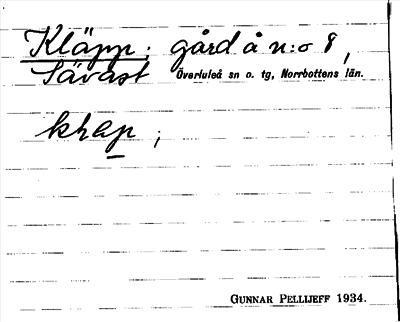 Kläpp; gård å n:o 8,
Sävast Överluleå sn o. tg, Norrbottens län.
;
GUNNAR PELLIJEFF 1934.